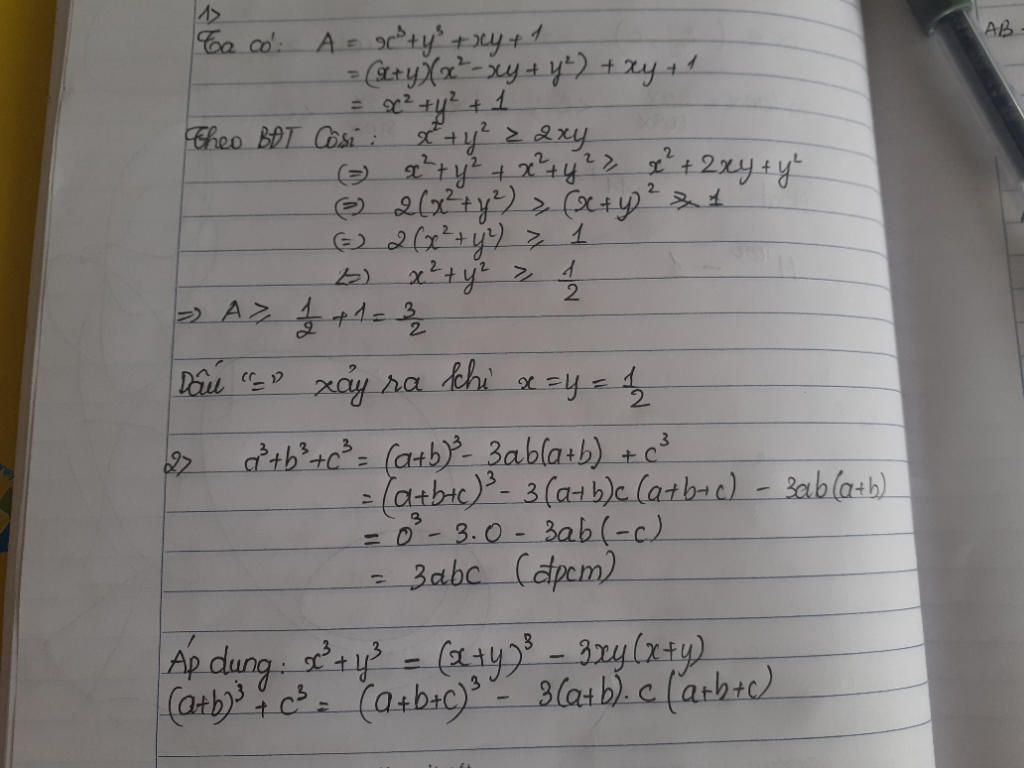 1>
Ta có: A = x³+y³+xy+1
= (x+y)(x²-xy+y²) + xy+1
= x²+y²+1
Theo BĐT Côsi: x²+y² ≥ 2xy
(=) x²+y² + x²+y² ≥ x²+2xy+y²
(=) 2(x²+y²) ≥ (x+y)² ≥ 1
(=) 2(x²+y²) ≥ 1
<=> x²+y² ≥ 1/2
=> A ≥ 1/2 + 1 = 3/2
Dấu "=" xảy ra khi x=y=1/2
2> a³+b³+c³ = (a+b)³ - 3ab(a+b) + c³
= (a+b+c)³ - 3(a+b)c(a+b+c) - 3ab(a+b)
= 0³ - 3.0 - 3ab(-c)
= 3abc (đpcm)
Áp dụng: x³+y³ = (x+y)³ - 3xy(x+y)
(a+b)³ + c³ = (a+b+c)³ - 3(a+b).c(a+b+c)
AB